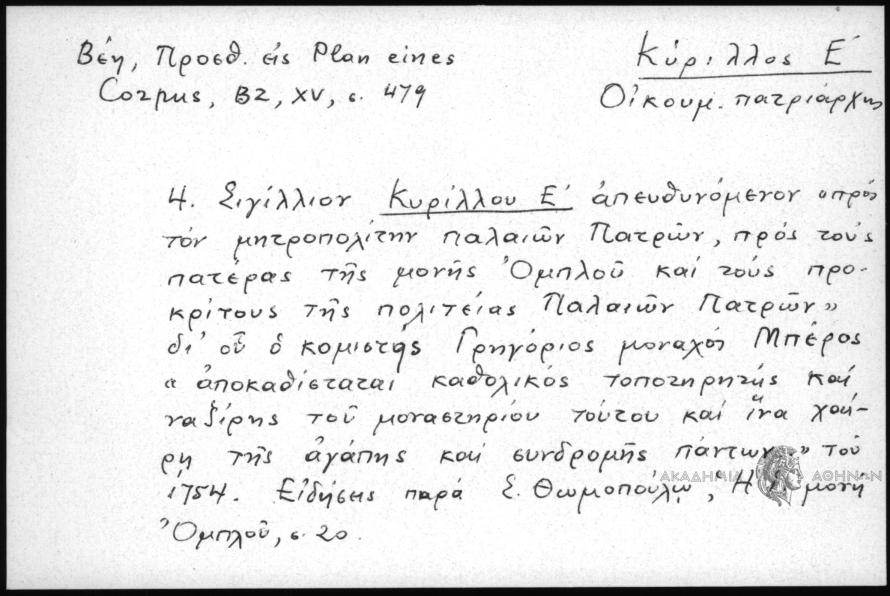 Βέη, Προσθ. εἰς Plan eines
Corpus, BZ, XV, σ. 479
Κύριλλος Ε΄
Οἰκουμ. πατριάρχης
4. Σιγίλλιον Κυρίλλου Ε΄ ἀπευθυνόμενον «πρός
τόν μητροπολίτην παλαιῶν Πατρῶν, πρός τούς
πατέρας τῆς μονῆς Ὀμπλοῦ καί τούς προ-
κρίτους τῆς πολιτείας Παλαιῶν Πατρῶν»
δι' οὗ ὁ κομιστής Γρηγόριος μοναχός Μπέρος
«ἀποκαθίσταται καθολικός τοποτηρητής καί
ναζίρης τοῦ μοναστηρίου τούτου καί ἵνα χαί-
ρῃ τῆς ἀγάπης καί συνδρομῆς πάντων» τοῦ
1754. Εἰδήσεις παρά Σ. Θωμοπούλῳ, Ἡ μονή
Ὀμπλοῦ, σ. 20.
ΑΚΑΔΗΜΙΑ ΑΘΗΝΩΝ